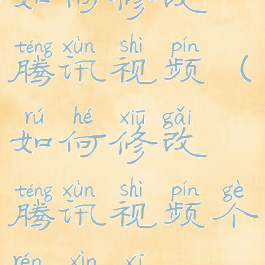 如何修改
téng xùn shì pín
腾讯视频（
rú hé xiū gǎi
如何修改
téng xùn shì pín gè
腾讯视频个
rén xìn xī